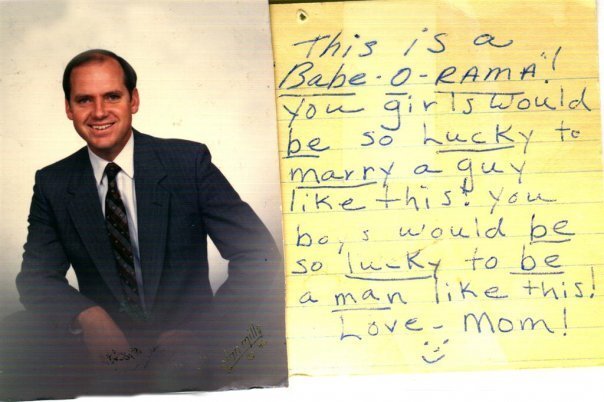 This is a
Babe-O-RAMA!
you girls would
be so Lucky to
marry a guy
like this! you
boys would be
so lucky to be
a man like this!
Love - Mom!